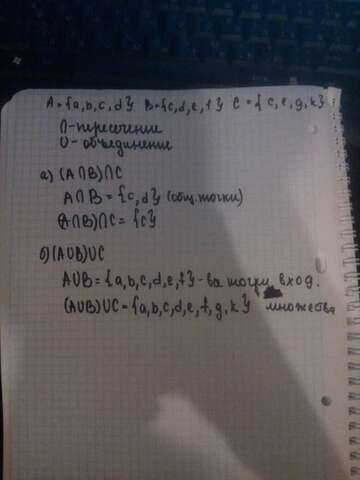 A={a,b,c,d} B={c,d,e,f} C={c,e,g,k}
∩-пересечение
∪-объединение
а) (A∩B)∩C
A∩B={c,d} (общ. точки)
(A∩B)∩C={c}
б) (A∪B)∪C
A∪B={a,b,c,d,e,f}- все точки, вход.
(A∪B)∪C={a,b,c,d,e,f,g,k} множества